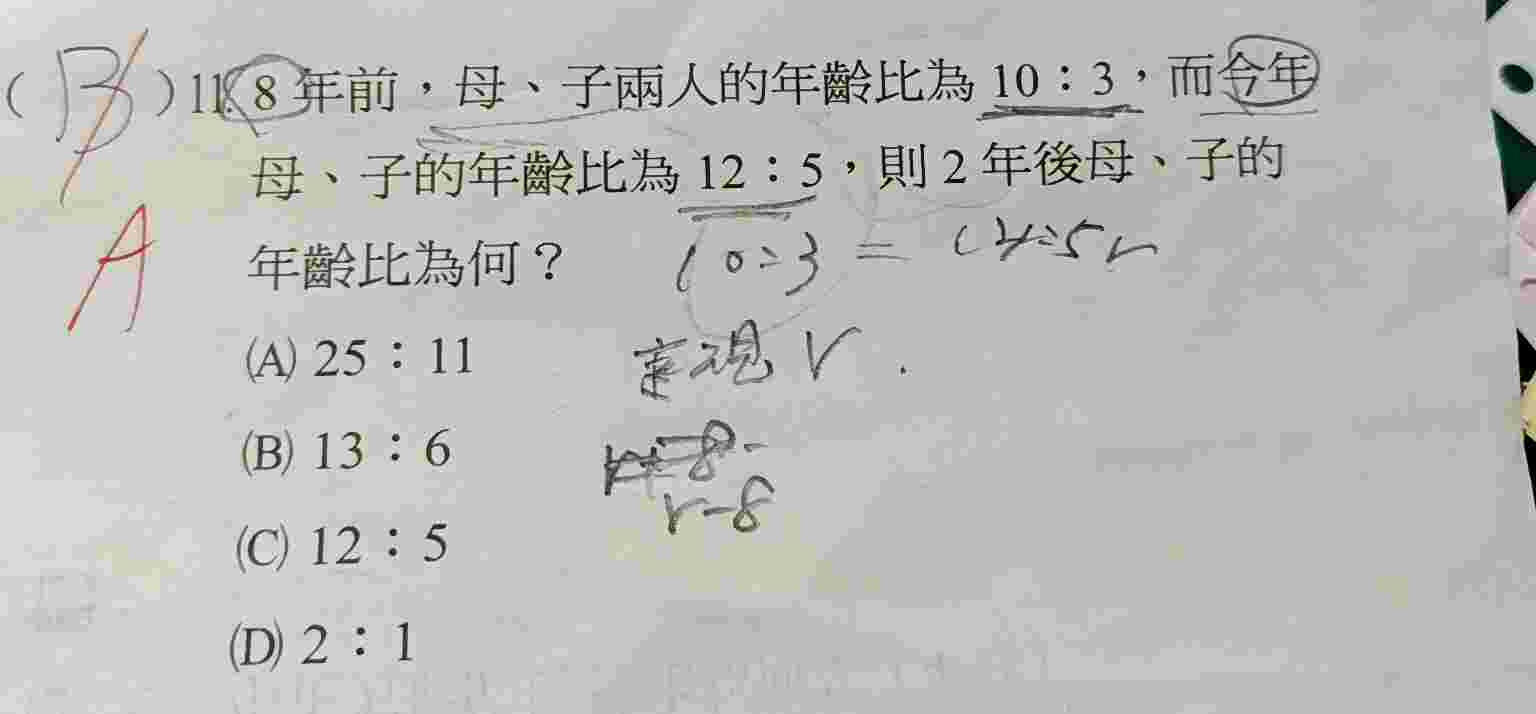 (B)11. 8年前，母、子兩人的年齡比為10：3，而今年
母、子的年齡比為12：5，則2年後母、子的
A
年齡比為何？
10:3 = 12:5r
(A) 25：11
r
(B) 13：6
-8
r-8
(C) 12：5
(D) 2：1